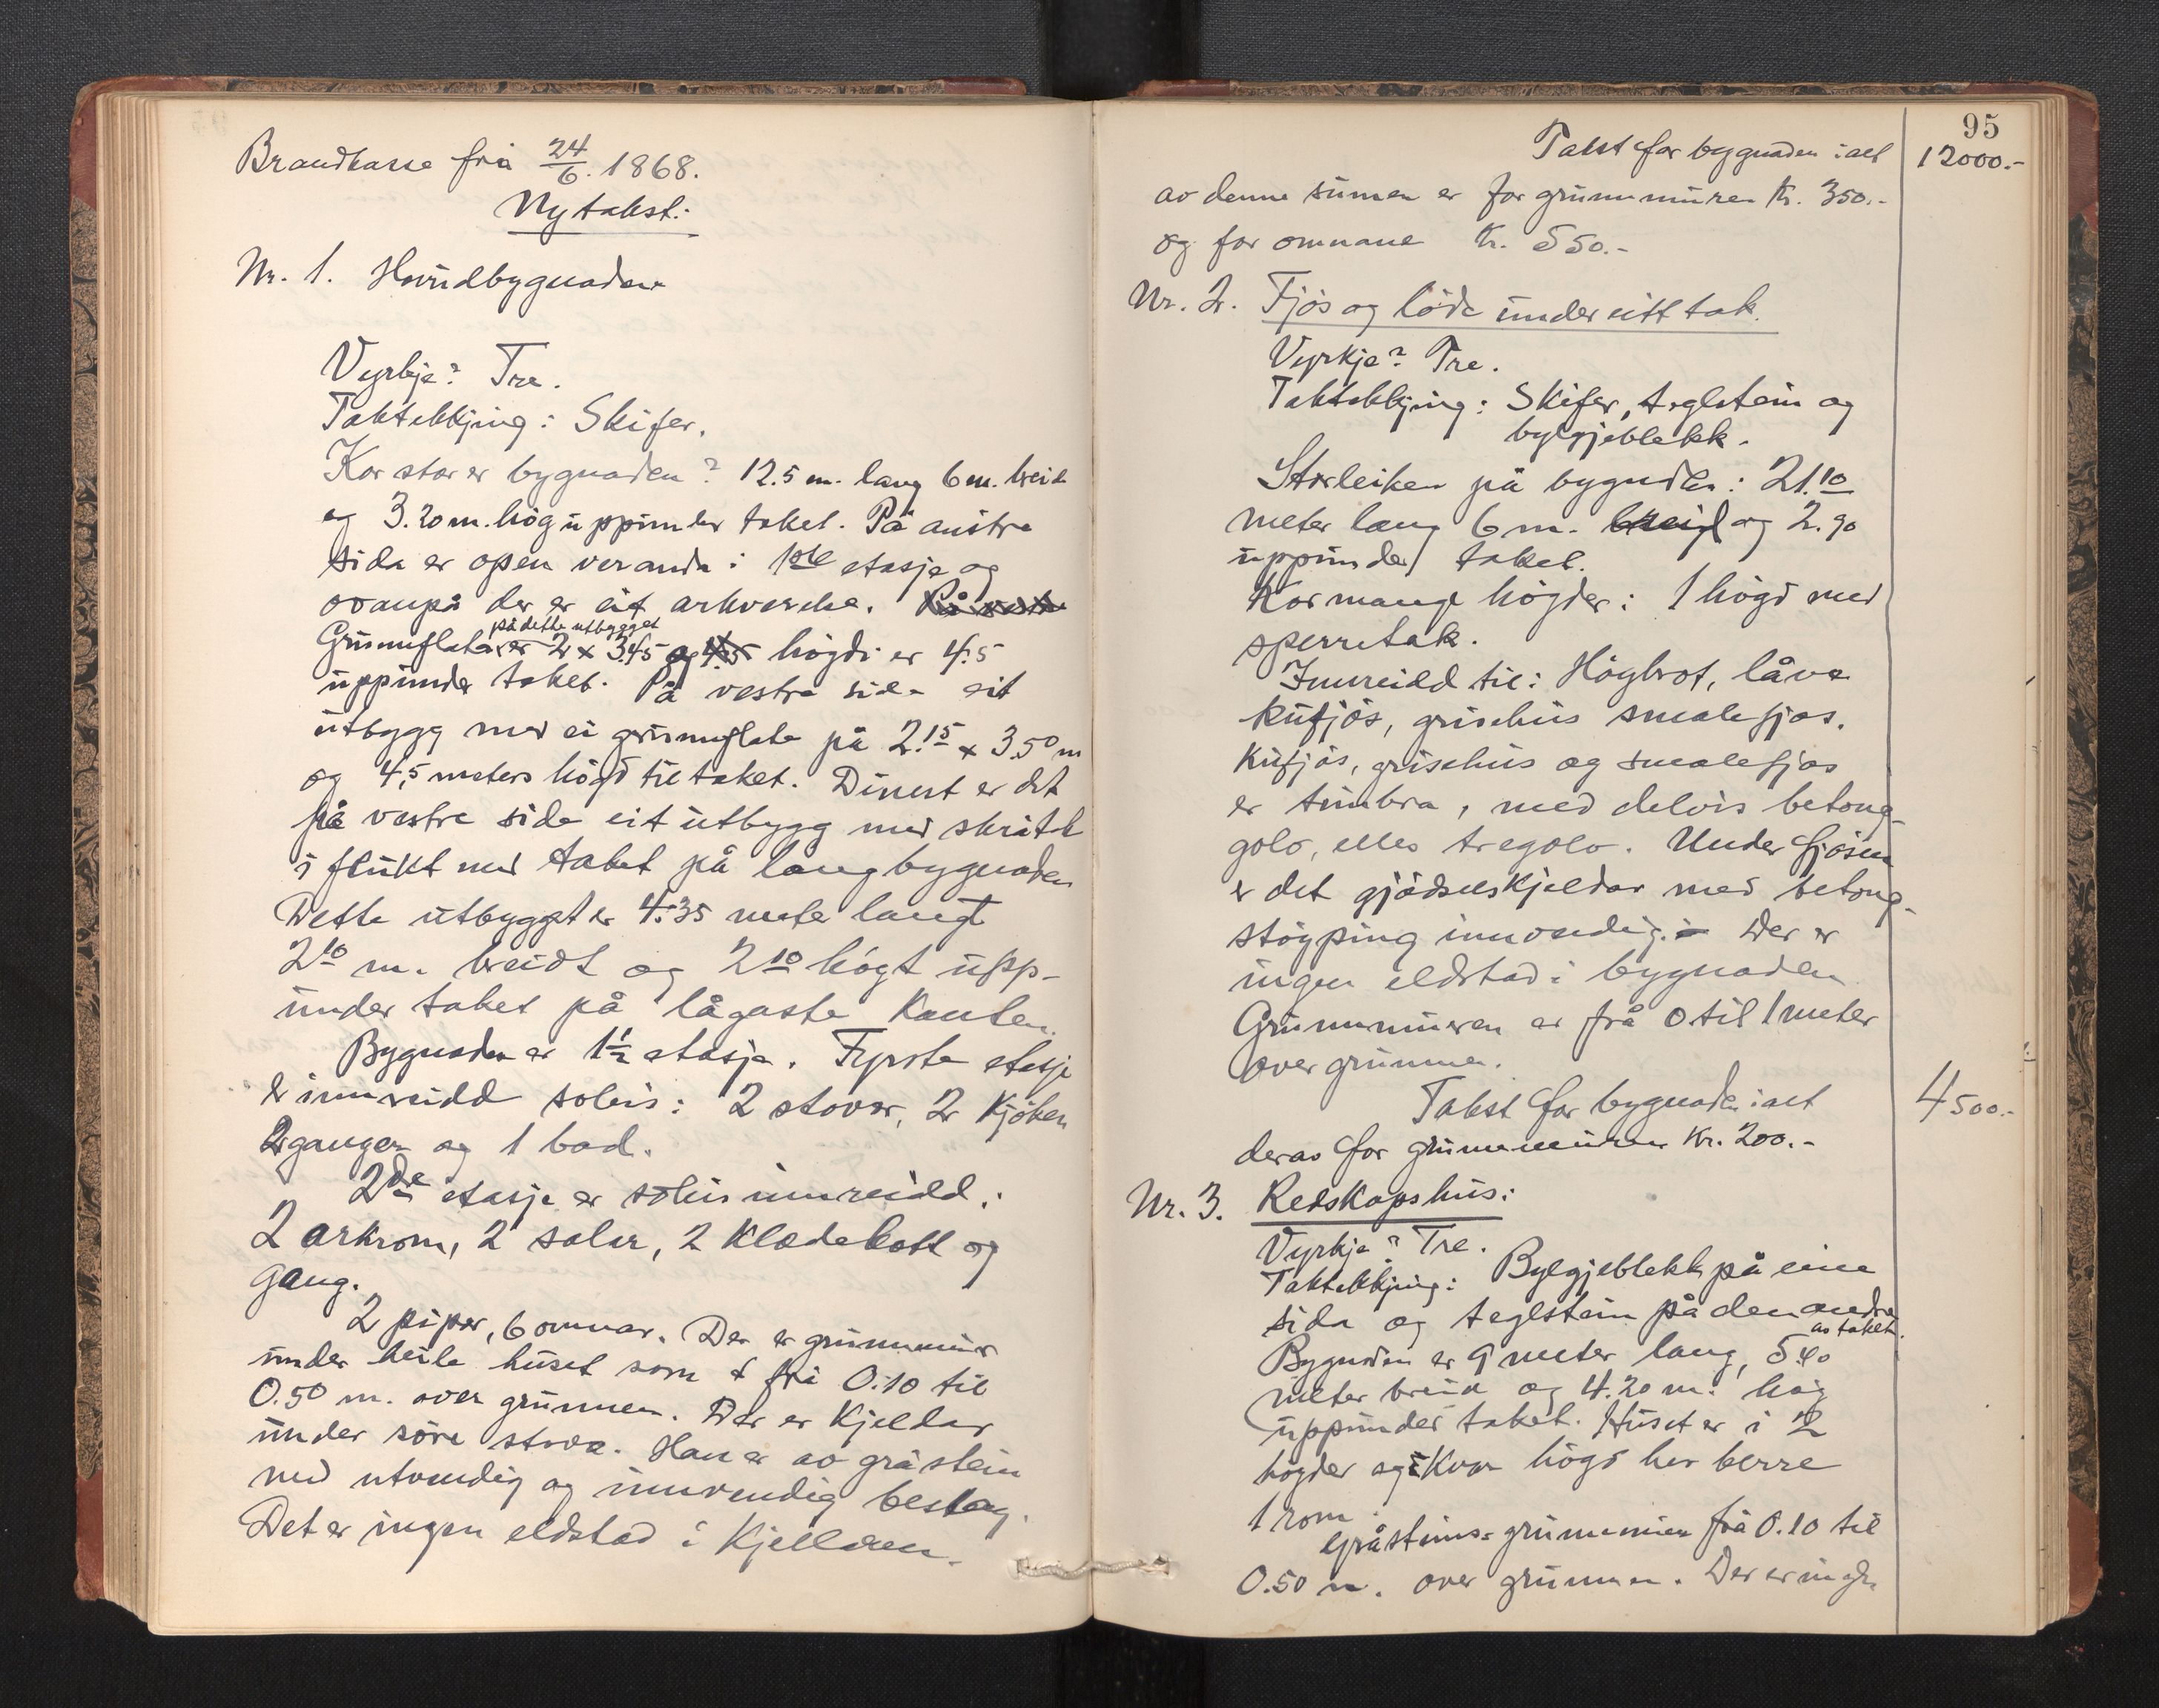 Brandkasse frå 24/6. 1868.
Ny takst:
Nr. 1. Hovudbygnaden
Vyrkje? Tre.
Taktekkjing: Skifer.
Kor stor er bygnaden? 12.5 m. lang 6 m. breid
og 3.20 m. høg uppunder taket. På austre
sida er open veranda i 1ste etasje og
ovanpå der er eit arkværelse. På vestre
på dette utbygget
Grunnflata er 2 x 3.45 og 4.5 högdi er 4.5
uppunder taket. På vestre side eit
utbygg med ei grunnflate på 2.15 x 3.50 m
og 4,5 meters högd til taket. Dinest er det
på vestre side eit utbygg med skråtak
i flukt med taket på langbygnaden
Dette utbygget er 4.35 meter langt
2.10 m. breidt og 2.10 högt upp-
under taket på lågaste kanten.
Bygnaden er 1½ etasje. Fyrste etasje
er innreidd soleis: 2 stover, 2 kjöken
2 ganger og 1 bad.
2dre etasje er soleis innreidd:
2 arkrom, 2 salar, 2 klædekott og
gang.
2 piper, 6 omnar. Der er grunnmur
under heile huset som er frå 0.10 til
0.50 m. over grunnen. Der er kjellar
under søre stova. Han er av gråstein
med utvendig og innvendig beslag.
Det er ingen eldstad i kjellaren.
95
Takst for bygnaden ialt 12000.-
av denne sumen er for grunnmuren kr. 350.-
og for omnane kr. 550.-
Nr. 2. Fjös og löde under eitt tak.
Vyrkje? Tre.
Taktekkjing: Skifer, teglstein og
bylgjeblekk.
Storleiken på bygnaden: 21.10
meter lang 6 m. breid og 2.90
uppunder taket.
Kor mange högder: 1 högd med
sperretak.
Innreidd til: Högbrot, låve
kufjös, grisehus smalefjos.
Kufjös, grisehus og smalefjos
er timbra, med delvis betong-
golv, elles tregolv. Under fjösen
er det gjödselskjeldar med betong-
stöyping innvendig. Der er
ingen eldstad i bygnaden
Grunnmuren er frå 0 til 1 meter
over grunnen.
Takst for bygnaden ialt 4500.-
derav for grunnmuren kr. 200.-
Nr. 3. Redskapshus:
Vyrkje? Tre.
Taktekkjing: Bylgjeblekk på eine
sida og teglstein på den andre
av taket.
Bygnaden er 9 meter lang, 5.40
meter breid og 4.20 m. høg
uppunder taket. Huset er i 2
högder og i kvar högd her berre
1 rom.
Gråsteins-grunnmur frå 0.10 til
0.50 m. over grunnen. Der er ingen